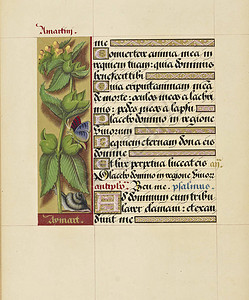 me
Convertere anima mea in
requiem tuam: quia dominus
benefecit tibi
Quia eripuit animam mea
de morte: oculos meos a lachri
mis: pedes meos a lapsu
Placebo domino in regione
vivorum
Requiem eternam dona eis
domine
Et lux perpetua luceat eis
Placebo domino in regione vivor
Heu me. psalmus.
Ad dominum cum tribu
larer clamavi: et exau
divit me